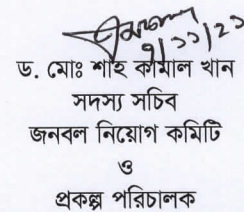 ৭/১১/২১
ড. মোঃ শাহ কামাল খান
সদস্য সচিব
জনবল নিয়োগ কমিটি
ও
প্রকল্প পরিচালক